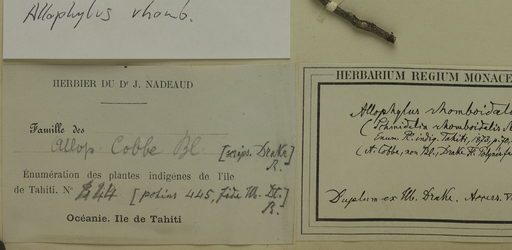 Allophylus rhomb.
HERBIER DU Dr J. NADEAUD
Famille des
Allop. Cobbe Bl. [scrips. Drake]
R.
Énumération des plantes indigènes de l'île
de Tahiti. N° 444 [potius 445, fide Hb. Dr.]
R.
Océanie. Ile de Tahiti
HERBARIUM REGIUM MONACE
Allophylus rhomboidal
(Schmidelia rhomboidalis N
Enum. Pl. indig. Tahiti, 1873, p. 70,
(A. Cobbe, non Bl., Drake Fl. Polynés. f
Duplum ex Hb. Drake.